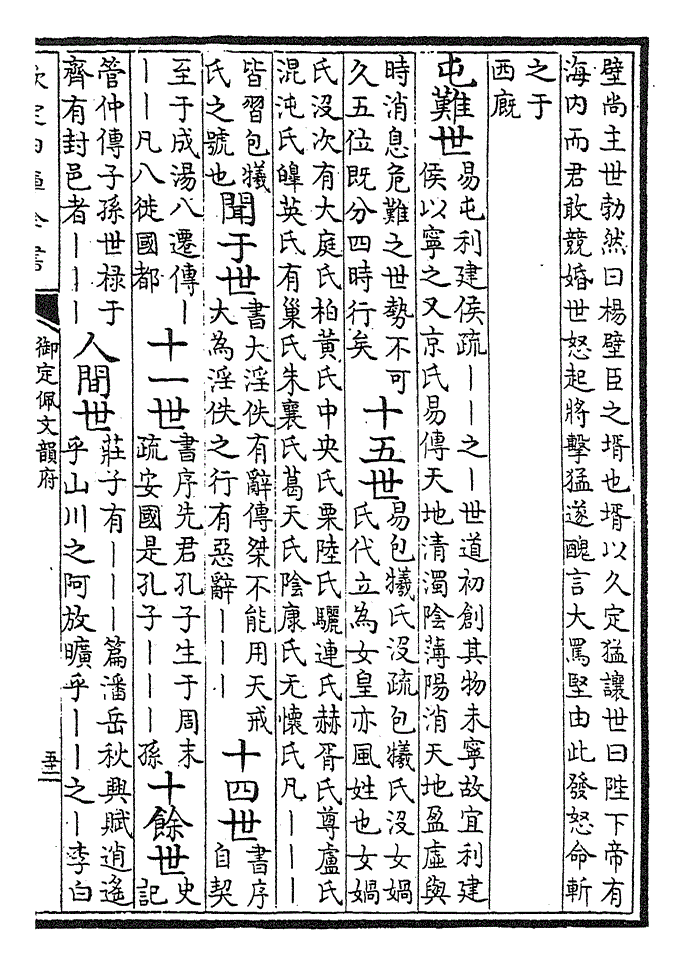 壁尚主世勃然曰楊壁臣之壻也壻以久定猛讓世曰陛下帝有
海内而君敢競婚世怒起將擊猛遂醜言大罵堅由此發怒命斬
之于
西廐
屯難世
易屯利建侯疏丨丨之丨世道初創其物未寧故宜利建
侯以寧之又京氏易傳天地清濁陰薄陽消天地盈虛與
時消息危難之世勢不可
久五位既分四時行矣
十五世
易包犧氏沒疏包犧氏沒女媧
氏代立為女皇亦風姓也女媧
氏沒次有大庭氏柏黃氏中央氏栗陸氏驪連氏赫胥氏尊盧氏
混沌氏皥英氏有巢氏朱襄氏葛天氏陰康氏无懷氏凡丨丨丨
皆習包犧
氏之號也
聞于世
書大淫佚有辭傳桀不能用天戒
大為淫佚之行有惡辭丨丨丨
十四世
書序
自契
至于成湯八遷傳丨
丨丨凡八徙國都
十一世
書序先君孔子生于周末
疏安國是孔子丨丨丨孫
十餘世
史
記
管仲傳子孫世祿于
齊有封邑者丨丨丨
人間世
莊子有丨丨丨篇潘岳秋興賦逍遙
乎山川之阿放曠乎丨丨之丨李白
欽定四庫全書
御定佩文韻府